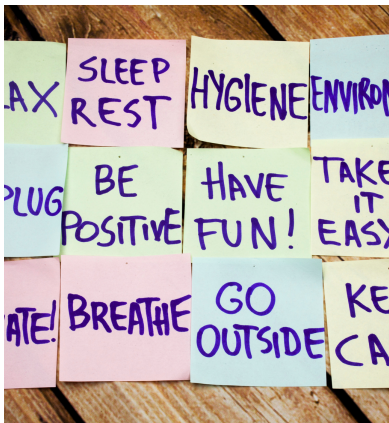 LAX
SLEEP
REST
HYGIENE
ENVIRON
PLUG
BE
POSITIVE
HAVE
FUN!
TAKE
IT
EASY
ATE!
BREATHE
GO
OUTSIDE
KE
CA